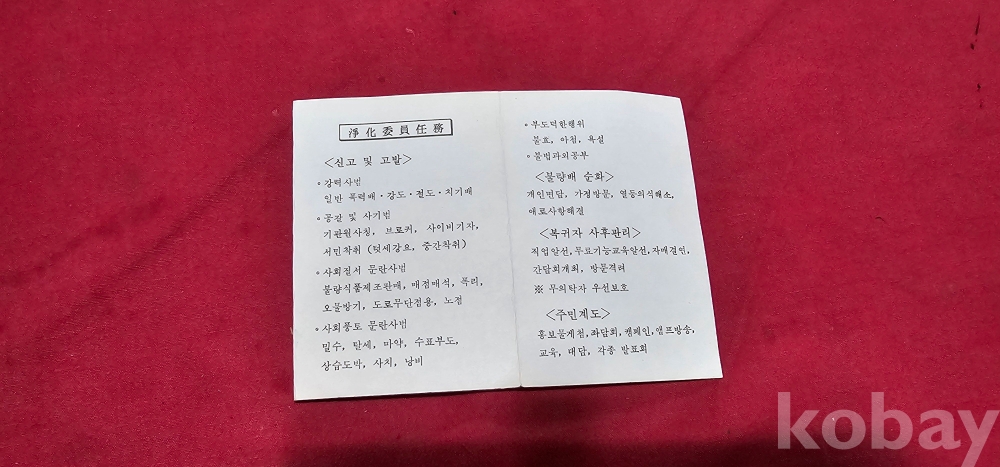 淨化委員任務
<신고 및 고발>
◦강력사범
일반 폭력배·강도·절도·치기배
◦공갈 및 사기범
기관원사칭, 브로커, 사이비기자,
서민착취 (텃세강요, 중간착취)
◦사회질서 문란사범
불량식품제조판매, 매점매석, 폭리,
오물방기, 도로무단점용, 노점
◦사회풍토 문란사범
밀수, 탈세, 마약, 수표부도,
상습도박, 사치, 낭비
◦부도덕한행위
불효, 아첨, 욕설
◦불법과외공부
<불량배 순화>
개인면담, 가정방문, 열등의식해소,
애로사항해결
<복귀자 사후관리>
직업알선, 무료기능교육알선, 자매결연,
간담회개최, 방문격려
※ 무의탁자 우선보호
<주민계도>
홍보물게첨, 좌담회, 캠페인, 앰프방송,
교육, 대담, 각종 발표회
kobay